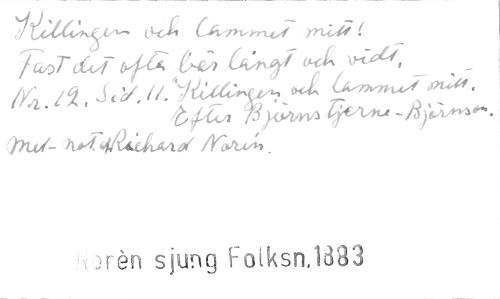 Killingen och lammet mitt!
Fast det ofta bär långt och vidt,
Nr. 12. Sid. 11. "Killingen och lammet mitt.
Efter Björnstjerne-Björnson.
Met-not. Richard Norén.
Norèn sjung Folksn.1883